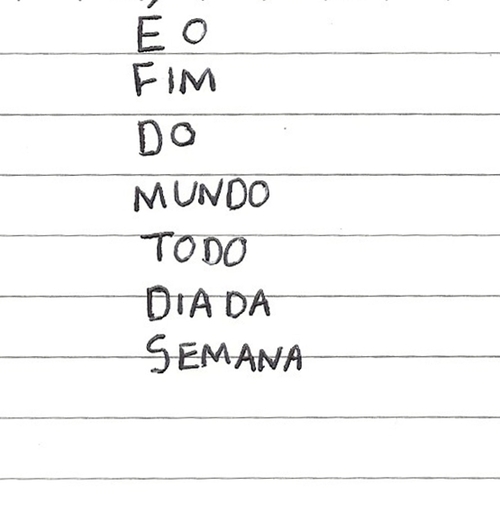 E O
FIM
DO
MUNDO
TODO
DIA DA
SEMANA